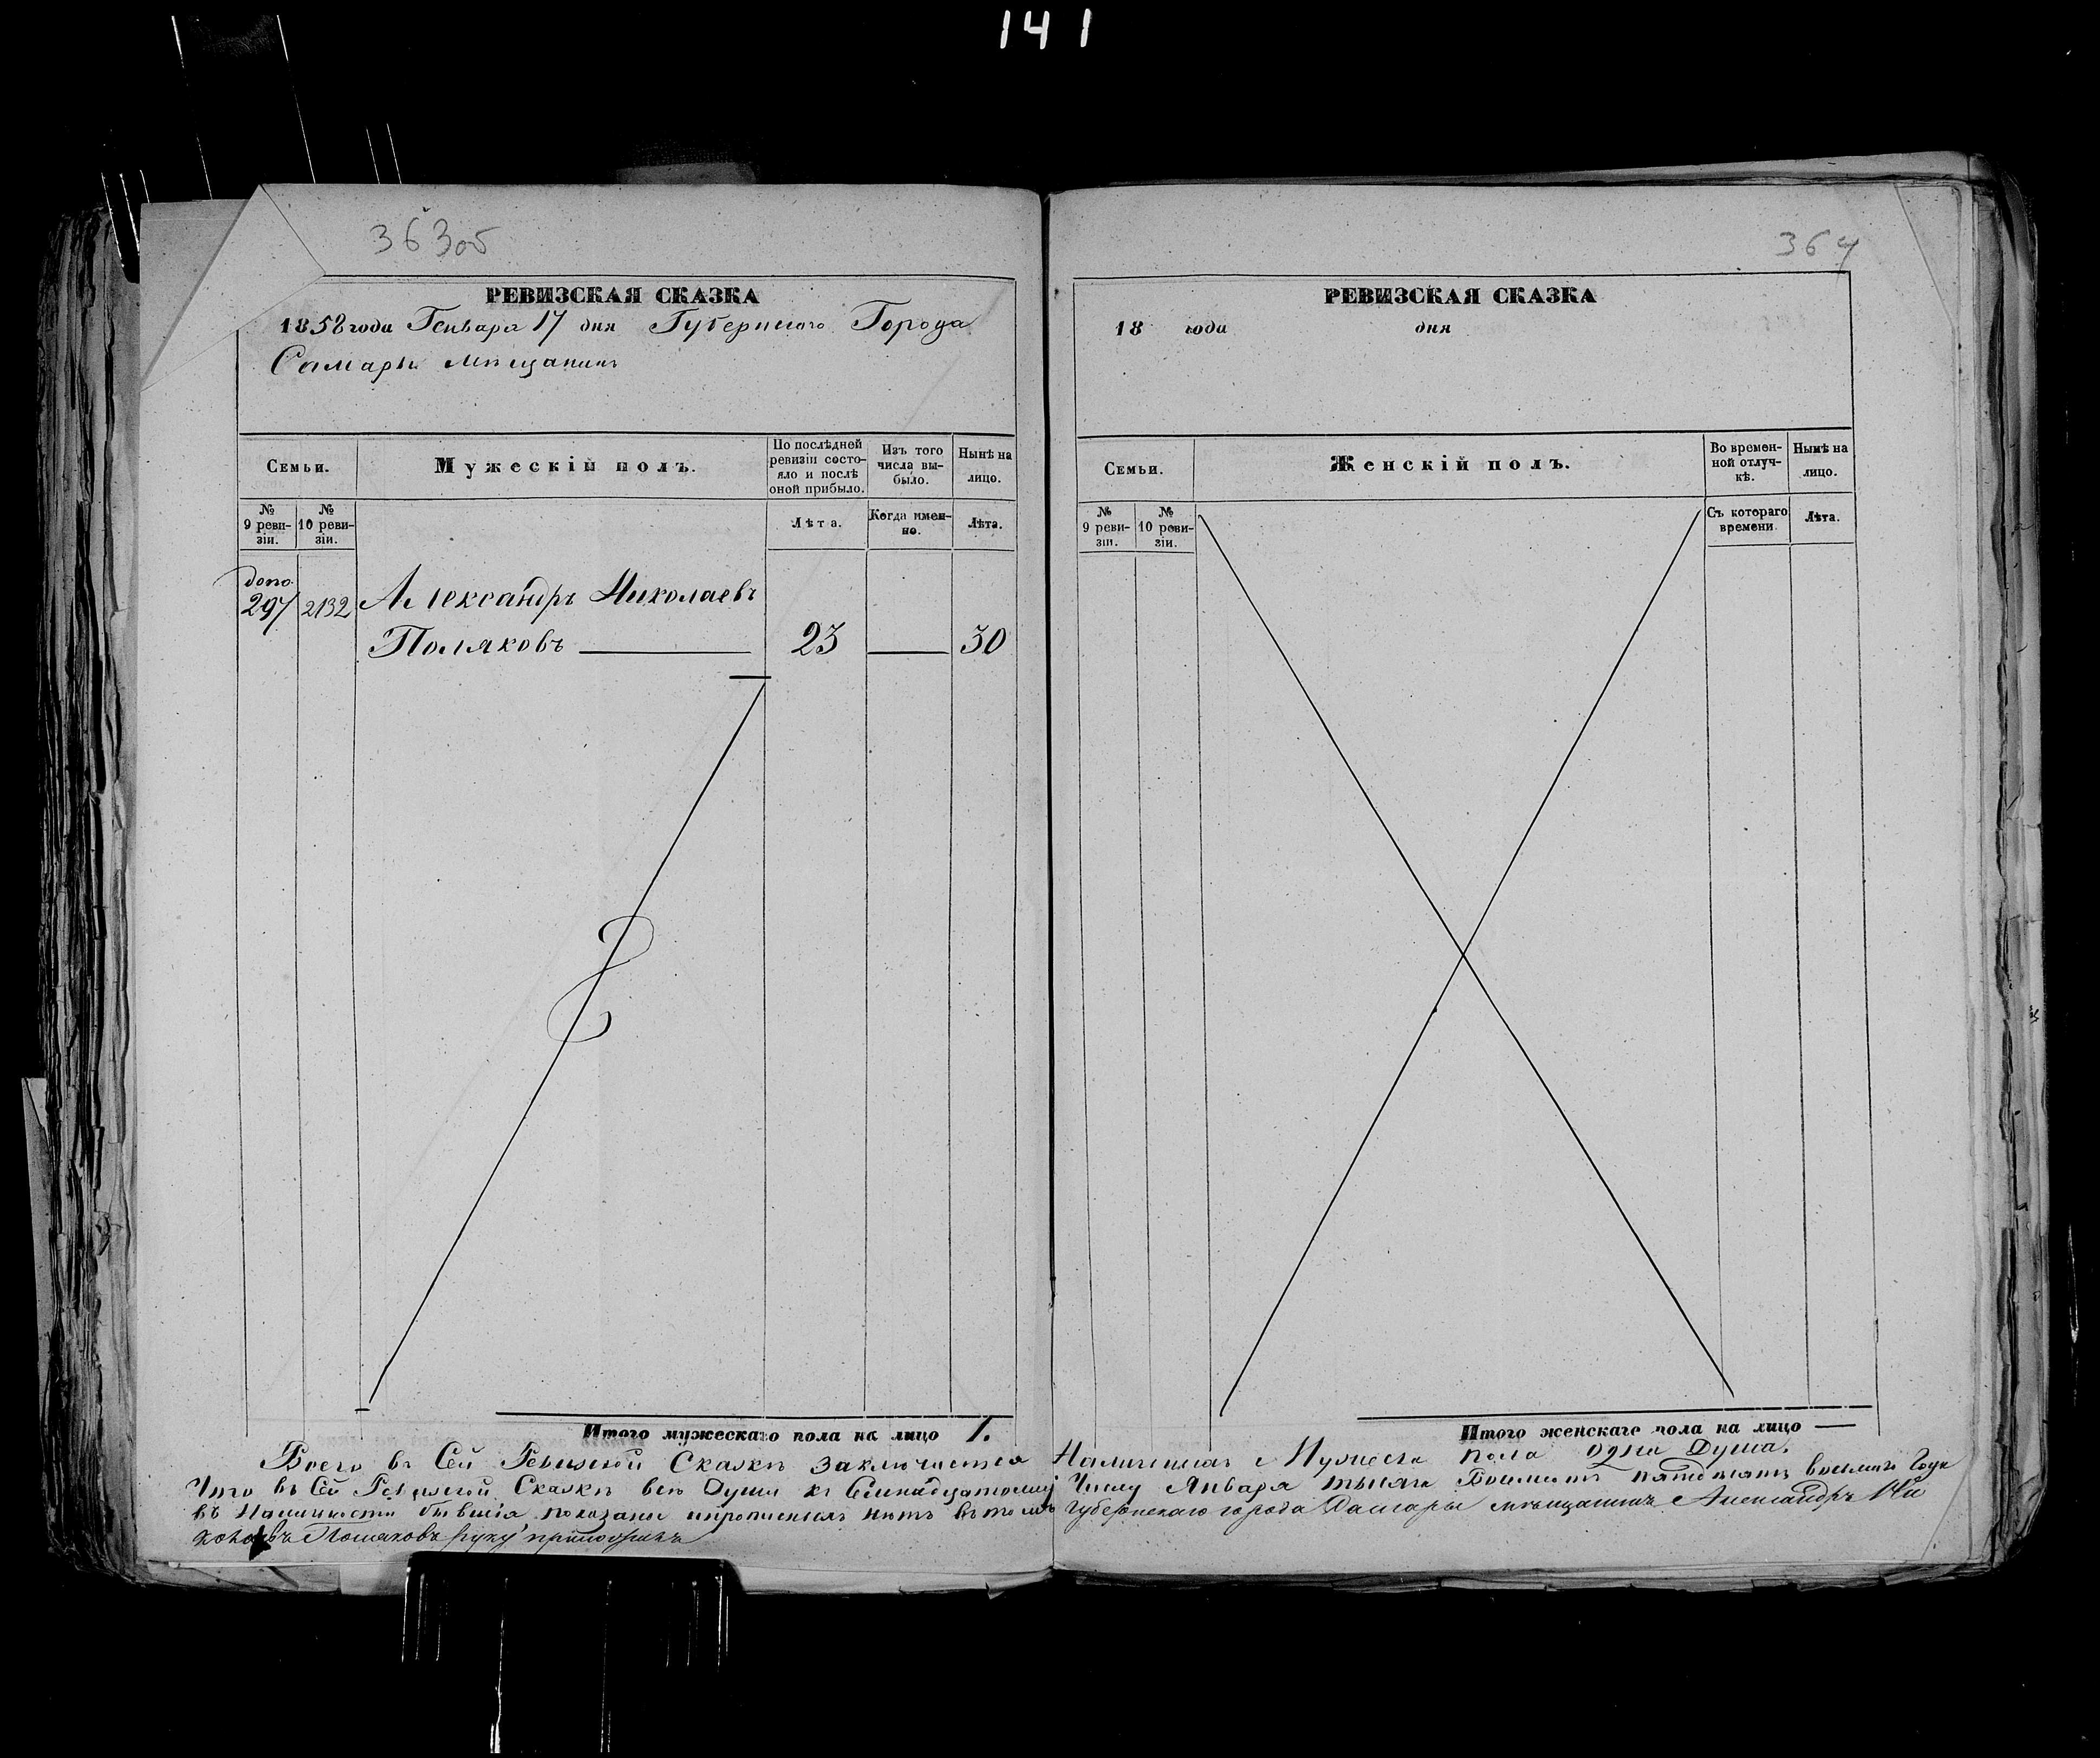 141
363об
РЕВИЗСКАЯ СКАЗКА
1858 года Генваря 17 дня Губернского Города
Самары мѣщанинъ
Семьи.
Мужескій полъ.
По послѣдней ревизіи состояло и послѣ оной прибыло.
Изъ того числа выбыло.
Нынѣ на лицо.
№ 9 ревизіи.
№ 10 ревизіи.
Лѣта.
Когда именно.
Лѣта.
допо
297 2132 Александръ Николаевъ
Поляковъ 23 — 30
Итого мужескаго пола на лицо 1.
364
РЕВИЗСКАЯ СКАЗКА
18 года дня
Семьи.
Женскій полъ.
Во временной отлучкѣ.
Нынѣ на лицо.
№ 9 ревизіи.
№ 10 ревизіи.
Съ котораго времени.
Лѣта.
Итого женскаго пола на лицо —
Всего въ Сей Ревизской Сказкѣ заключается Наличныхъ Мужеска пола одна Душа.
Что въ Сей Ревизской Сказкѣ всѣ Души къ Семнадцатому Числу Января тысяча Восемсотъ пятдесятъ восьмаго Года
въ Наличности бывшія показаны и прописныхъ нѣтъ въ томъ Губернскаго города Самары мѣщанинъ Александръ Ни
колаевъ Поляковъ руку приложилъ